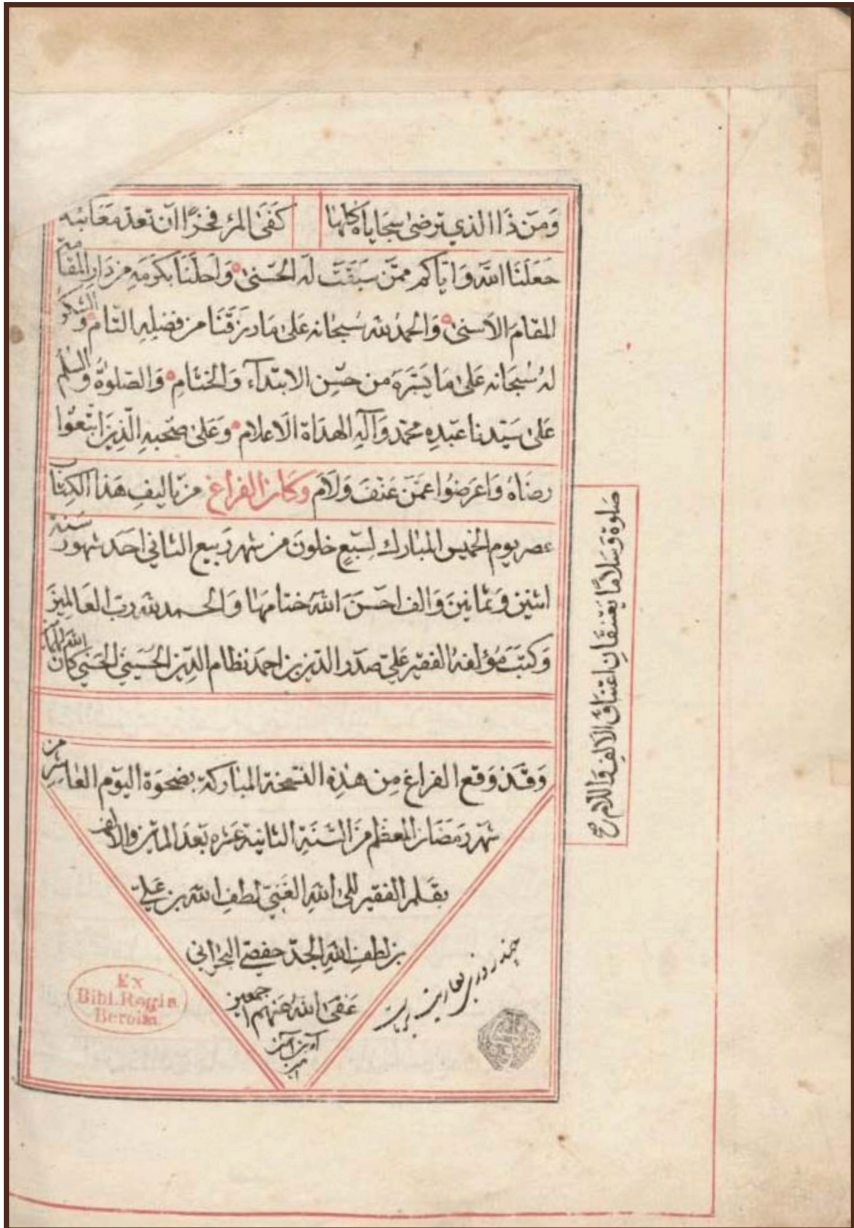 وَمَن ذَا الذي تُرضى سجاياه كلها    كَفى المرءَ فخرًا ان تعدّ معائبه
جَعلنا اللهَ وَايّاكم ممّن سَبقت لَه الحُسنى وَاحلّنا بكرَمه من دَارِ المقامة
المقامَ الاسنى وَالحمد لله سُبحانه عَلى مَا رزقنا من فضله التام وَالشكر
لهُ سُبحانه عَلى مَا يسّرَهُ من حسن الابتداء وَالختام وَالصّلوة وَالسلم
على سَيّدنا عَبده محمّد وَآله الهداة الاعلام وَعَلى صَحبه الّذين اتبعوا
رضاه وَاعرضوا عمّن عنف وَلام وَكان الفراغ من تاليف هذا الكتاب
عصر يوم الخميس المبارك لسبع خلون من شهر ربيع الثاني احد شهور سنة
اثنين وَثمانين وَالف احسن الله ختامها وَالحمد لله ربّ العالمين
وَكتبَ مؤلفه الفقير علي صدر الدين بن احمد نظام الدين الحسيني الحسني كان الله لهما
صَلوة وَسَلامًا يعتنقان اعتناق الالف وَاللام صح
وَقد وَقع الفراغ من هذه النسخة المباركة بضحوة اليوم العاشر من
شهر رمضان المعظم من السّنة الثانية عشره بعد المائة والالف
بقلم الفقير الى الله الغني لطف الله بن علي
بن لطف الله الجدّ حفصي البحراني
عَفى الله عنهم اجمعين
آمين آمين
امين
چند روزى بعاريت
Ex
Bibl. Regia
Berolin.